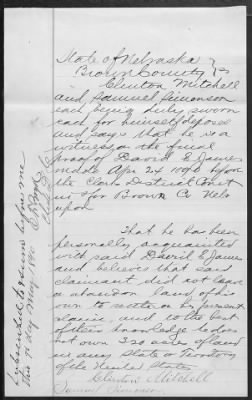 State of Nebraska
Brown County ss
Clinton Mitchell
and Samuel Simonson
each being duly sworn
each for himself deposes
and says that he is a
witness on the final
proof of David E James
made Apr 24 1890 before
the Clerk District Court
in & for Brown Co Neb
upon
That he has been
personally acquainted
with said David E James
and believes that said
claimant did not leave
or abandon land of his
own to settle on his present
claim, and to the best
of their knowledge he does
not own 320 acres of land
in any State or Territory
of the United States
Clinton Mitchell
Samuel Simonson
Subscribed & sworn before me
this 9th day May 1890
Clerk D C